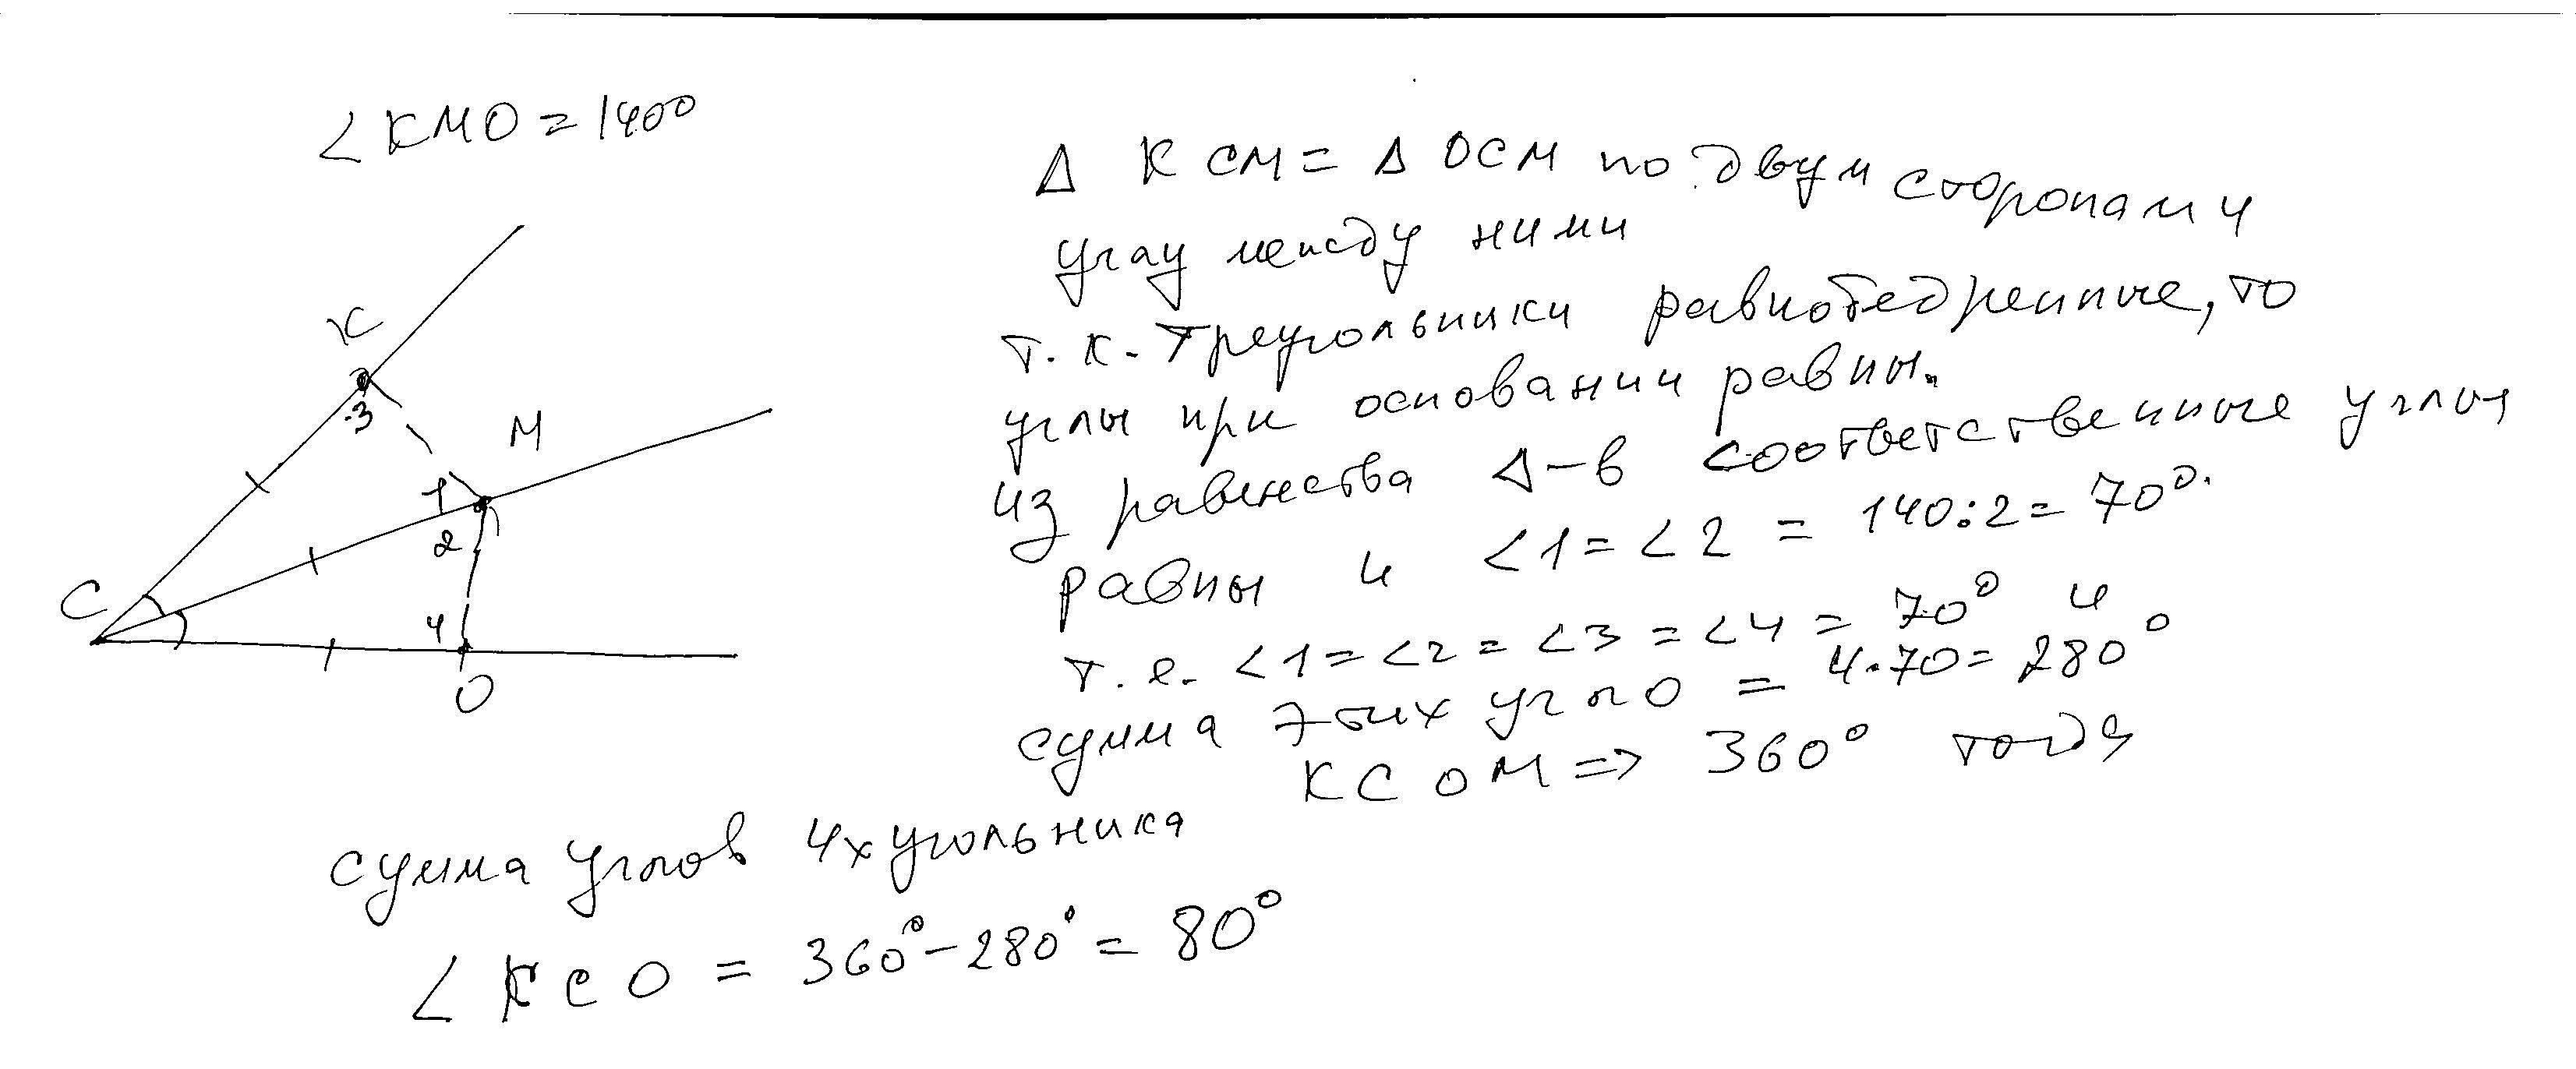 ∠KMO = 140°
K
3
M
1
2
C
4
O
Δ KCM = Δ OCM по двум сторонам и
углу между ними
т.к. треугольники равнобедренные, то
углы при основании равны.
из равенства Δ-в соответственные углы
равны и ∠1 = ∠2 = 140:2 = 70°.
т.е. ∠1 = ∠2 = ∠3 = ∠4 = 70° и
сумма этих угло = 4·70 = 280°
сумма углов 4хугольника KCOM => 360° тогда
∠KCO = 360° - 280° = 80°